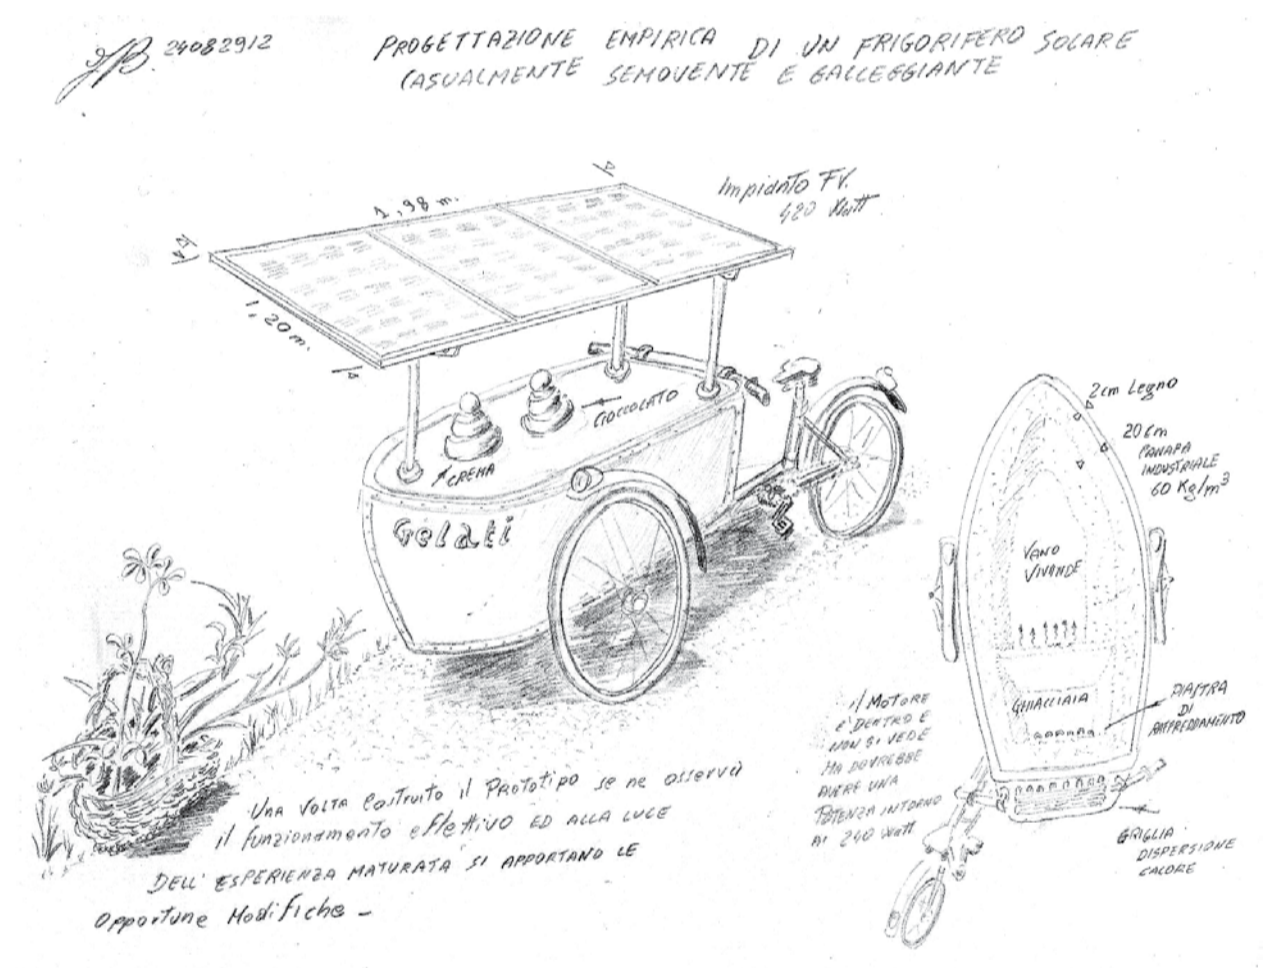 24082912
PROGETTAZIONE EMPIRICA DI UN FRIGORIFERO SOLARE
CASUALMENTE SEMOVENTE E GALLEGGIANTE
Impianto FV.
420 Watt
1,98 m.
1,20 m.
CIOCCOLATO
CREMA
Gelati
2cm Legno
20 cm
PANAPA
INDUSTRIALE
60 Kg/m³
VANO
VIVANDE
GHIACCIAIA
PIASTRA
DI
RAFFREDDAMENTO
il MOTORE
E' DENTRO E
NON SI VEDE
MA DOVREBBE
AVERE UNA
POTENZA INTORNO
AI 240 Watt
GRIGLIA
DISPERSIONE
CALORE
UNA VOLTA Costruito il Prototipo se ne osserva
il funzionamento effettivo ED ALLA LUCE
DELL' ESPERIENZA MATURATA SI APPORTANO LE
Opportune Modifiche -